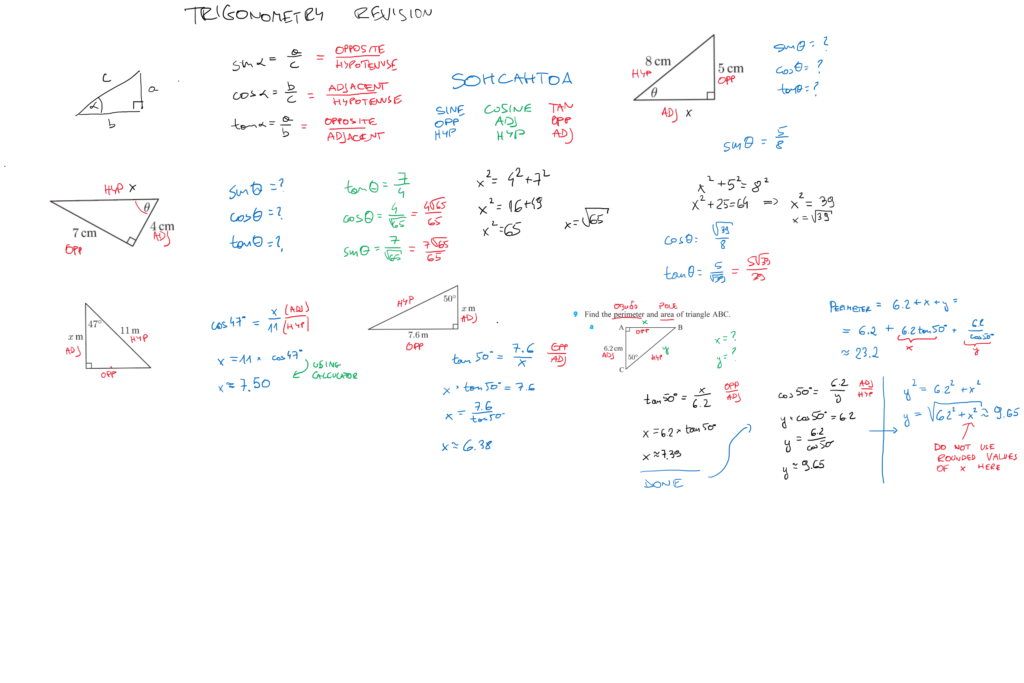 TRIGONOMETRY REVISION
c
a
α
b
sinα = a/c = OPPOSITE/HYPOTENUSE
cosα = b/c = ADJACENT/HYPOTENUSE
tanα = a/b = OPPOSITE/ADJACENT
SOHCAHTOA
SINE COSINE TAN
OPP ADJ OPP
HYP HYP ADJ
8 cm
HYP
5 cm
OPP
θ
ADJ x
sinθ = ?
cosθ = ?
tanθ = ?
sinθ = 5/8
x² + 5² = 8²
x² + 25 = 64 => x² = 39
x = √39
cosθ = √39/8
tanθ = 5/√39 = 5√39/39
HYP x
θ
7 cm
4 cm
ADJ
OPP
sinθ = ?
cosθ = ?
tanθ = ?
tanθ = 7/4
cosθ = 4/√65 = 4√65/65
sinθ = 7/√65 = 7√65/65
x² = 4² + 7²
x² = 16 + 49
x² = 65
x = √65
47°
11 m
HYP
x m
ADJ
OPP
cos47° = x/11 (ADJ/HYP)
x = 11 × cos47°
USING CALCULATOR
x ≈ 7.50
HYP
50°
x m
ADJ
7.6 m
OPP
tan50° = 7.6/x OPP/ADJ
x × tan50° = 7.6
x = 7.6/tan50°
x ≈ 6.38
POLE
9 Find the perimeter and area of triangle ABC.
a
A
x
OPP
B
6.2 cm
ADJ
50°
HYP
y
C
x = ?
y = ?
tan50° = x/6.2 OPP/ADJ
x = 6.2 × tan50°
x ≈ 7.39
DONE
cos50° = 6.2/y ADJ/HYP
y × cos50° = 6.2
y = 6.2/cos50°
y ≈ 9.65
PERIMETER = 6.2 + x + y =
= 6.2 + 6.2 tan50° + 6.2/cos50°
x
y
≈ 23.2
y² = 6.2² + x²
y = √6.2² + x² ≈ 9.65
DO NOT USE
ROUNDED VALUES
OF x HERE